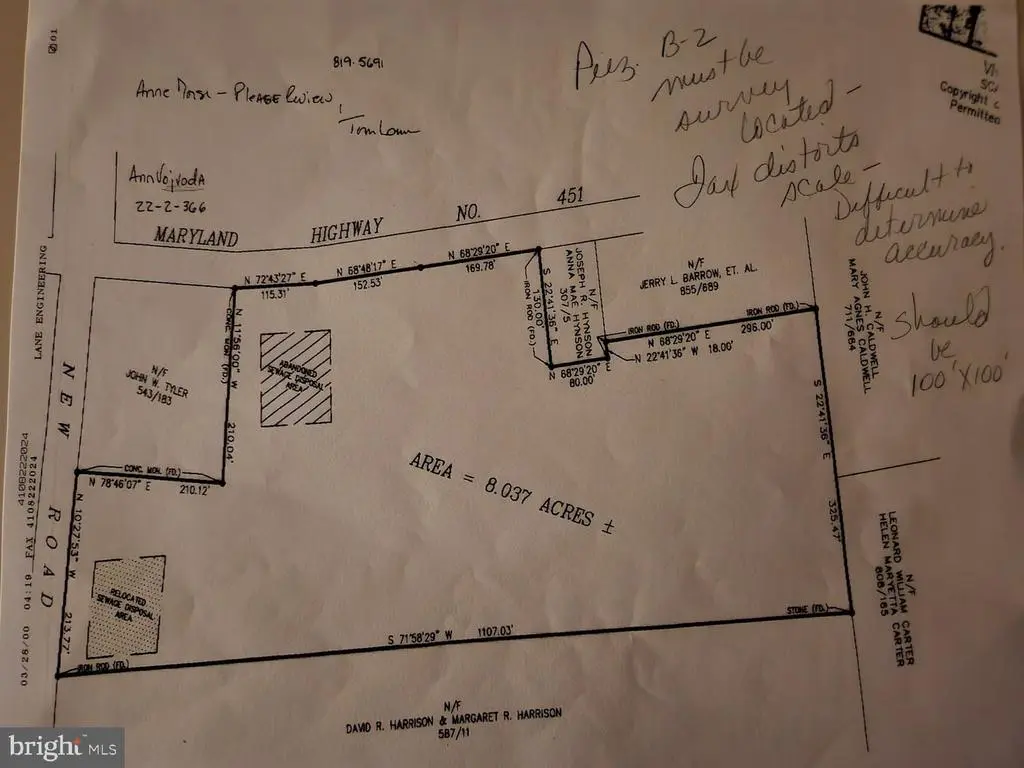 01
819-5691
Anne Morse - PLEASE Review,
Tom
Ann Vojvoda
22-2-366
Piez. B-2
must be
survey
located -
Fax distorts
scale -
Difficult to
determine
accuracy.
should
be
100' X 100'
Copyright
Permitted
MARYLAND HIGHWAY NO. 451
LANE ENGINEERING
4108222024
03/28/00 04:19 FAX 4108222024
NEW ROAD
N 72°43'27" E
115.31'
N 68°48'17" E
152.53'
N 68°29'20" E
169.78'
IRON ROD (FD.)
130.00'
S 22°41'36" E
N/F
JOSEPH R. HYNSON
ANNA MAE HYNSON
307/5
N/F
JERRY L. BARROW, ET. AL.
855/689
IRON ROD (FD.)
IRON ROD (FD.)
N 68°29'20" E
296.00'
N 22°41'36" W 18.00'
N 68°29'20" E
80.00'
N/F
JOHN H. CALDWELL
MARY AGNES CALDWELL
711/664
S 22°41'36" E
325.47'
N/F
JOHN W. TYLER
543/183
CONC. MON. (FD.)
N 11°58'00" W
210.04'
ABANDONED
SEWAGE DISPOSAL
AREA
CONC. MON. (FD.)
N 78°46'07" E
210.12'
AREA = 8.037 ACRES ±
N 10°27'53" W
213.77'
RELOCATED
SEWAGE DISPOSAL
AREA
IRON ROD (FD.)
S 71°58'29" W
1107.03'
STONE (FD.)
N/F
LEONARD WILLIAM CARTER
HELEN MARYETTA CARTER
808/165
N/F
DAVID R. HARRISON & MARGARET R. HARRISON
587/11
bright MLS